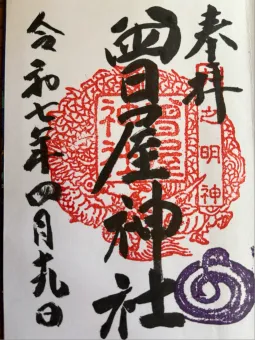 奉拝
之明神
曽屋神社
曽屋神社
令和七年四月十九日